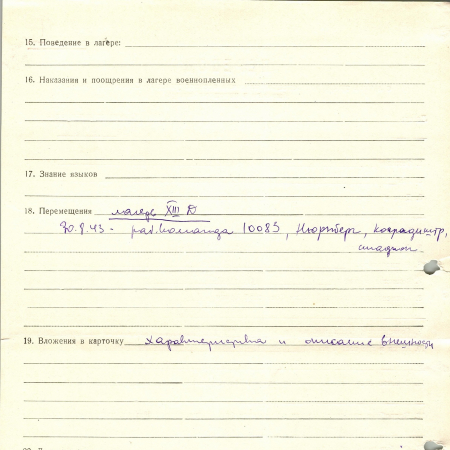 15. Поведение в лагере:
16. Наказания и поощрения в лагере военнопленных
17. Знание языков
18. Перемещения лагерь XIII D
30.8.43 - раб.команда 10083, Нюрнберг,
стадион
19. Вложения в карточку характеристика и описание внешности